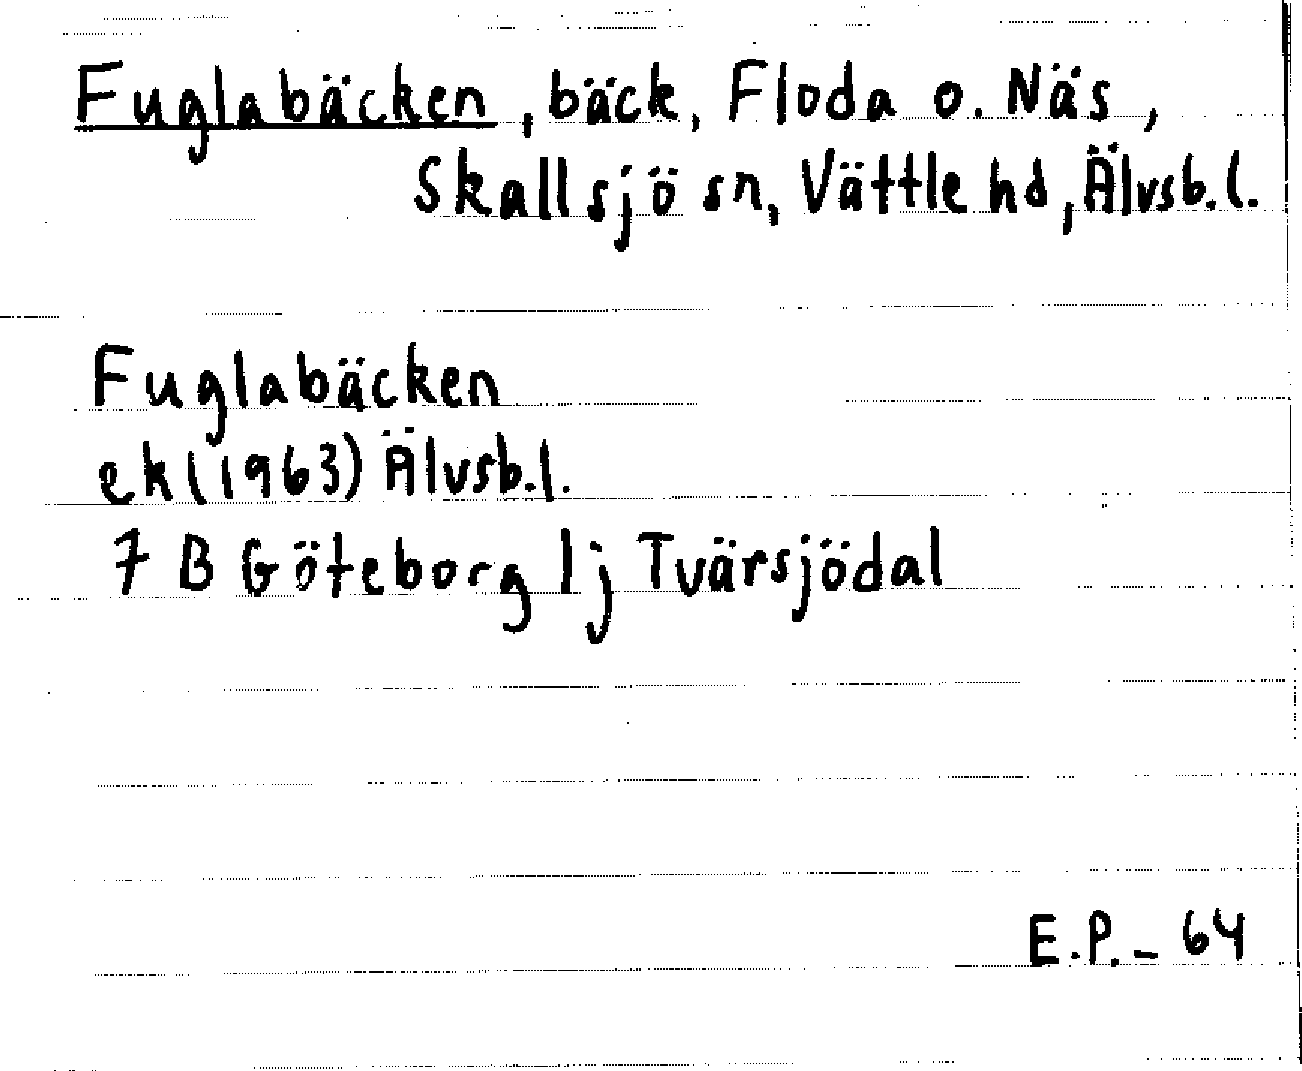 Fuglabäcken, bäck, Floda o. Näs,
Skallsjö sn, Vättle hd, Älvsb.l.
Fuglabäcken
ek (1963) Älvsb.l.
7 B Göteborg 1j Tvärsjödal
E.P.-64